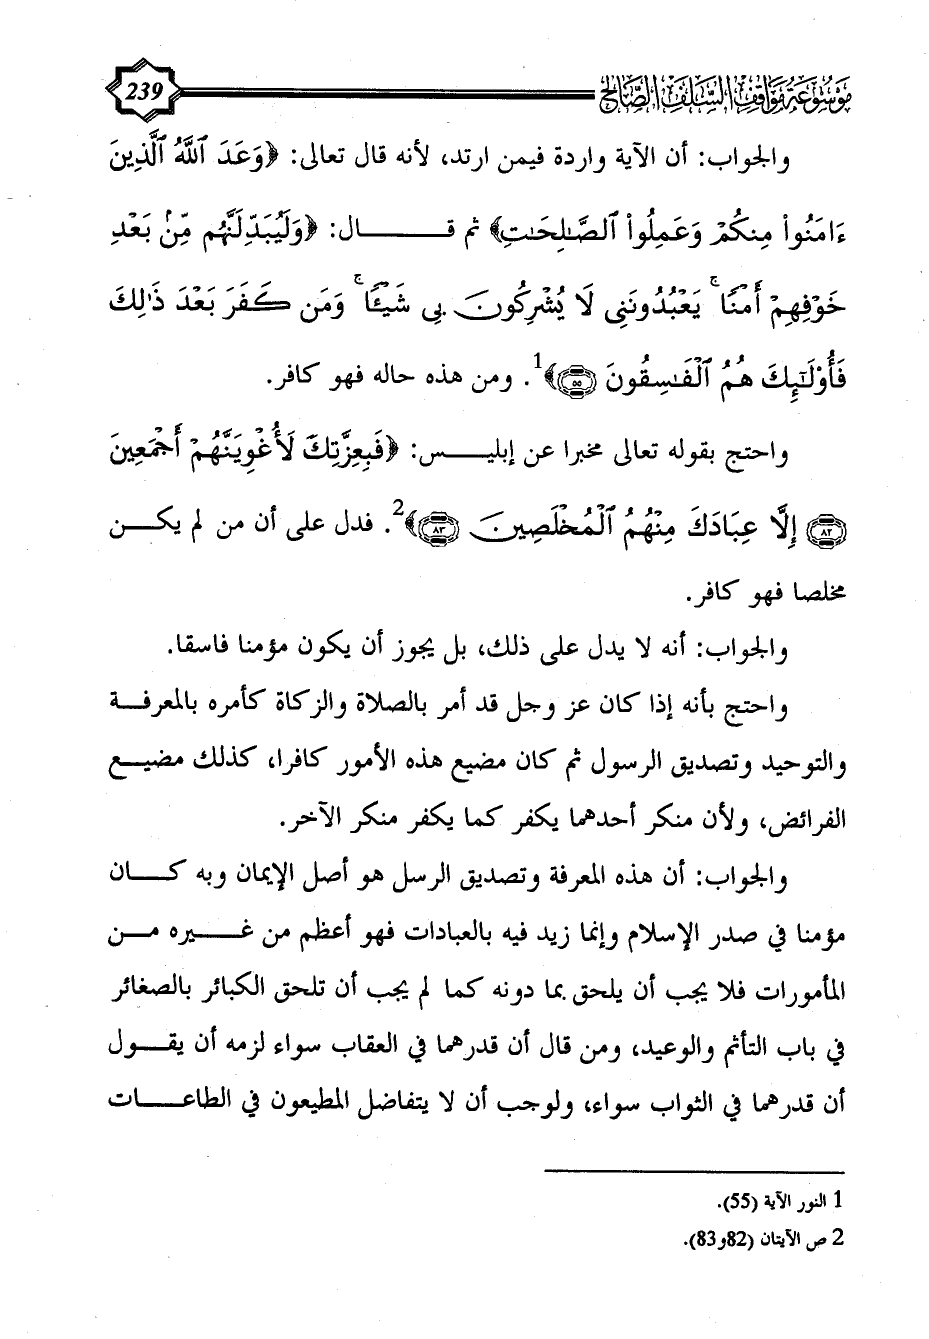 موسوعة مواقف السلف الصالح
239
والجواب: أن الآية واردة فيمن ارتد، لأنه قال تعالى: ﴿وَعَدَ ٱللَّهُ ٱلَّذِينَ
ءَامَنُواْ مِنكُمْ وَعَمِلُواْ ٱلصَّـٰلِحَـٰتِ﴾ ثم قـــــال: ﴿وَلَيُبَدِّلَنَّهُم مِّنۢ بَعْدِ
خَوْفِهِمْ أَمْنًا ۚ يَعْبُدُونَنِى لَا يُشْرِكُونَ بِى شَيْـًٔا ۚ وَمَن كَفَرَ بَعْدَ ذَٰلِكَ
فَأُوْلَـٰٓئِكَ هُمُ ٱلْفَـٰسِقُونَ ۝٥٥﴾1. ومن هذه حاله فهو كافر.
واحتج بقوله تعالى مخبرا عن إبليـــس: ﴿فَبِعِزَّتِكَ لَأُغْوِيَنَّهُمْ أَجْمَعِينَ
۝٨٢ إِلَّا عِبَادَكَ مِنْهُمُ ٱلْمُخْلَصِينَ ۝٨٣﴾2. فدل على أن من لم يكـــن
مخلصا فهو كافر.
والجواب: أنه لا يدل على ذلك، بل يجوز أن يكون مؤمنا فاسقا.
واحتج بأنه إذا كان عز وجل قد أمر بالصلاة والزكاة كأمره بالمعرفـــة
والتوحيد وتصديق الرسول ثم كان مضيع هذه الأمور كافرا، كذلك مضيـــع
الفرائض، ولأن منكر أحدهما يكفر كما يكفر منكر الآخر.
والجواب: أن هذه المعرفة وتصديق الرسل هو أصل الإيمان وبه كـــان
مؤمنا في صدر الإسلام وإنما زيد فيه بالعبادات فهو أعظم من غـــيره مـــن
المأمورات فلا يجب أن يلحق بما دونه كما لم يجب أن تلحق الكبائر بالصغائر
في باب التأثم والوعيد، ومن قال أن قدرهما في العقاب سواء لزمه أن يقـــول
أن قدرهما في الثواب سواء، ولوجب أن لا يتفاضل المطيعون في الطاعـــات
1 النور الآية (55).
2 ص الآيتان (82و83).